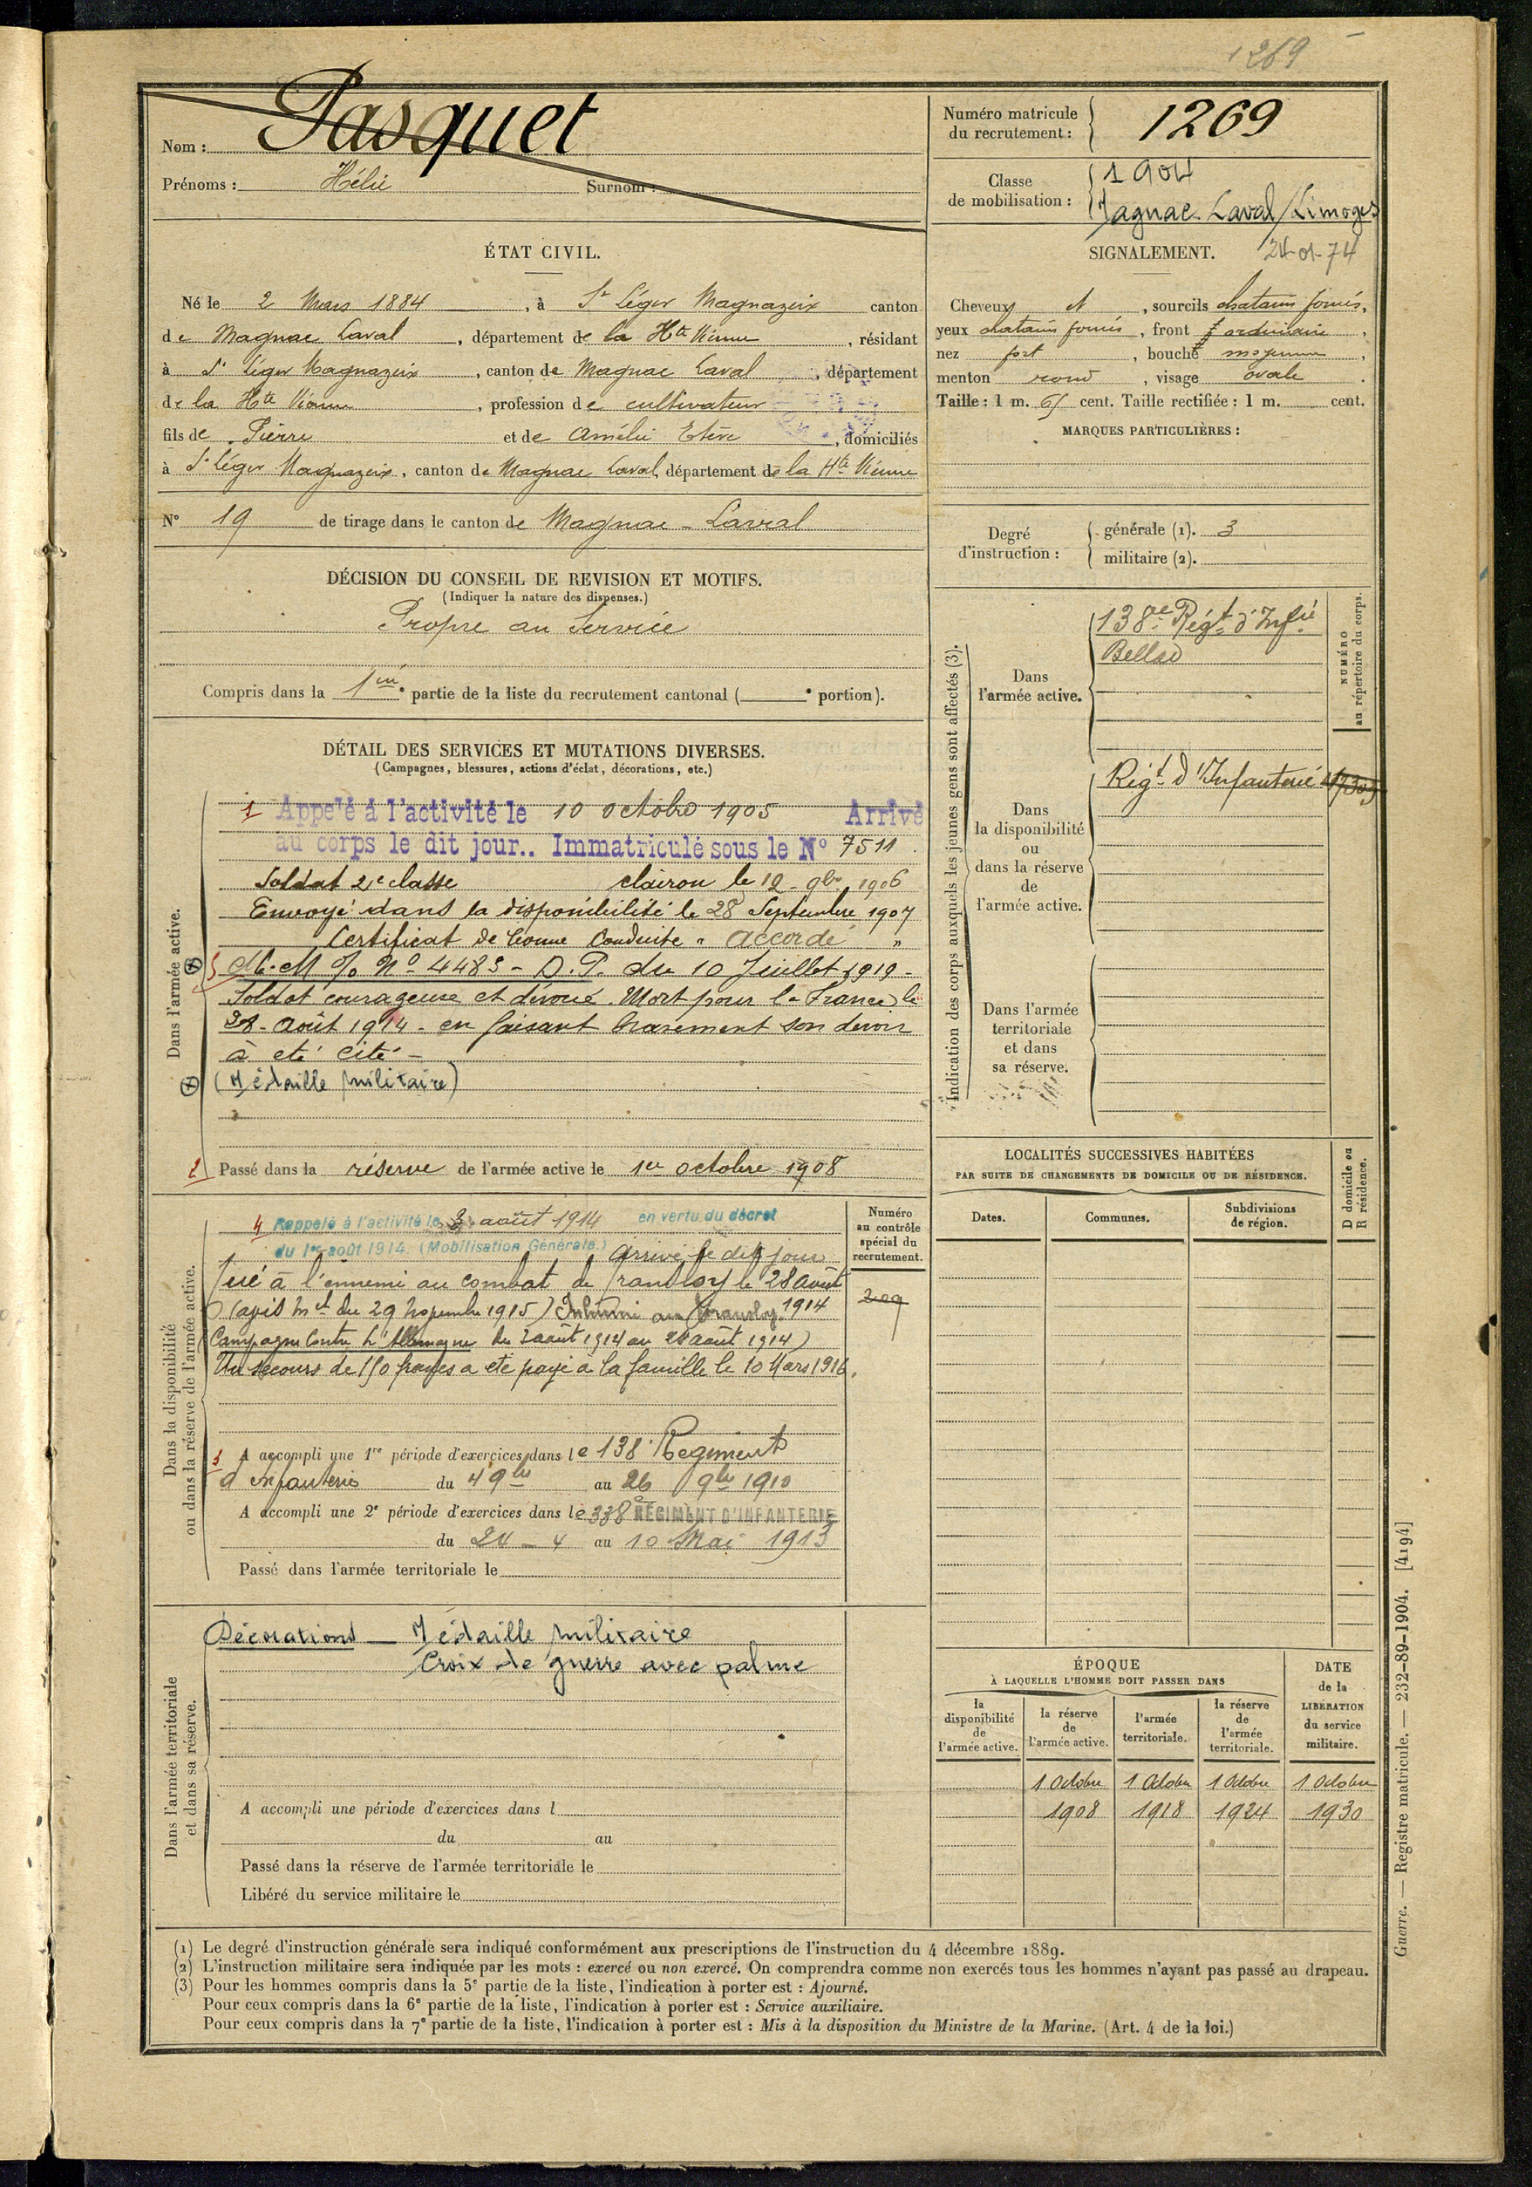 1269
Nom : Pasquet
Prénoms : Hélie Surnom :
ÉTAT CIVIL.
Né le 2 Mars 1884, à St Léger Magnazeix canton
de Magnac Laval, département de la Hte Vienne, résidant
à St Léger Magnazeix, canton de Magnac Laval, département
de la Hte Vienne, profession de cultivateur
fils de Pierre et de Amélie Etève, domiciliés
à St Léger Magnazeix, canton de Magnac Laval, département de la Hte Vienne
N° 19 de tirage dans le canton de Magnac-Laval
DÉCISION DU CONSEIL DE REVISION ET MOTIFS.
(Indiquer la nature des dispenses.)
Propre au Service
Compris dans la 1ère partie de la liste du recrutement cantonal ( e portion).
DÉTAIL DES SERVICES ET MUTATIONS DIVERSES.
(Campagnes, blessures, actions d'éclat, décorations, etc.)
Dans l'armée active.
1 Appelé à l'activité le 10 octobre 1905 Arrivé
au corps le dit jour.. Immatriculé sous le N° 7511.
Soldat 2e classe clairon le 12 9bre 1906
Envoyé dans la disponibilité le 28 Septembre 1907
Certificat de bonne Conduite " accordé "
5 M. M N° 4483 - D. P. du 10 Juillet 1919 -
Soldat courageux et dévoué. Mort pour la France le
28 - août 1914 - en faisant bravement son devoir
à eté cité -
(Médaille Militaire)
2 Passé dans la réserve de l'armée active le 1er octobre 1908
Dans la disponibilité
ou dans la réserve de l'armée active.
4 Rappelé à l'activité le 3 août 1914 en vertu du décret
du 1er août 1914. (Mobilisation Générale.) Arrivé le dit jour
Tué à l'ennemi au combat de Transloy le 28 août
1914
(avis Mel du 29 Novembre 1915) Inhumé au Transloy
Campagne Contre L'Allemagne du 3 août 1914 au 28 août 1914)
Un secours de 150 francs a été payé à la famille le 10 Mars 1916.
3 A accompli une 1re période d'exercices dans le 138e Régiment
d'Infanterie du 4 9bre au 26 9bre 1910
A accompli une 2e période d'exercices dans le 338e RÉGIMENT D'INFANTERIE
du 24 - 4 au 10 Mai 1913
Passé dans l'armée territoriale le
Numéro
au contrôle
spécial du
recrutement.
Dans l'armée territoriale
et dans sa réserve.
Décorations - Médaille Militaire
Croix de guerre avec palme
A accompli une période d'exercices dans l
du au
Passé dans la réserve de l'armée territoriale le
Libéré du service militaire le
Numéro matricule
du recrutement : 1269
Classe
de mobilisation : 1904
Magnac-Laval/Limoges
SIGNALEMENT. 24-01-74
Cheveux et, sourcils chatains foncés,
yeux chatains foncés, front ordinaire,
nez fort, bouche moyenne,
menton rond, visage ovale.
Taille : 1 m. 65 cent. Taille rectifiée : 1 m. cent.
MARQUES PARTICULIÈRES :
Degré
d'instruction :
générale (1). 3
militaire (2).
Indication des corps auxquels les jeunes gens sont affectés (3).
NUMÉRO
au répertoire du corps.
Dans
l'armée active.
138e Régt d'Infie
Bellac
Dans
la disponibilité
ou
dans la réserve
de
l'armée active.
Régt d'Infanterie
Dans l'armée
territoriale
et dans
sa réserve.
LOCALITÉS SUCCESSIVES HABITÉES
PAR SUITE DE CHANGEMENTS DE DOMICILE OU DE RÉSIDENCE.
Dates.
Communes.
Subdivisions
de région.
D domicile ou
R résidence.
ÉPOQUE
À LAQUELLE L'HOMME DOIT PASSER DANS
la
disponibilité
de
l'armée active.
la réserve
de
l'armée active.
l'armée
territoriale.
la réserve
de
l'armée
territoriale.
DATE
de la
LIBÉRATION
du service
militaire.
1 Octobre 1 Octobre 1 Octobre 1 Octobre
1908 1918 1924 1930
(1) Le degré d'instruction générale sera indiqué conformément aux prescriptions de l'instruction du 4 décembre 1889.
(2) L'instruction militaire sera indiquée par les mots : exercé ou non exercé. On comprendra comme non exercés tous les hommes n'ayant pas passé au drapeau.
(3) Pour les hommes compris dans la 5e partie de la liste, l'indication à porter est : Ajourné.
Pour ceux compris dans la 6e partie de la liste, l'indication à porter est : Service auxiliaire.
Pour ceux compris dans la 7e partie de la liste, l'indication à porter est : Mis à la disposition du Ministre de la Marine. (Art. 4 de la loi.)
Guerre. — Registre matricule. — 232-89-1904. [4194]